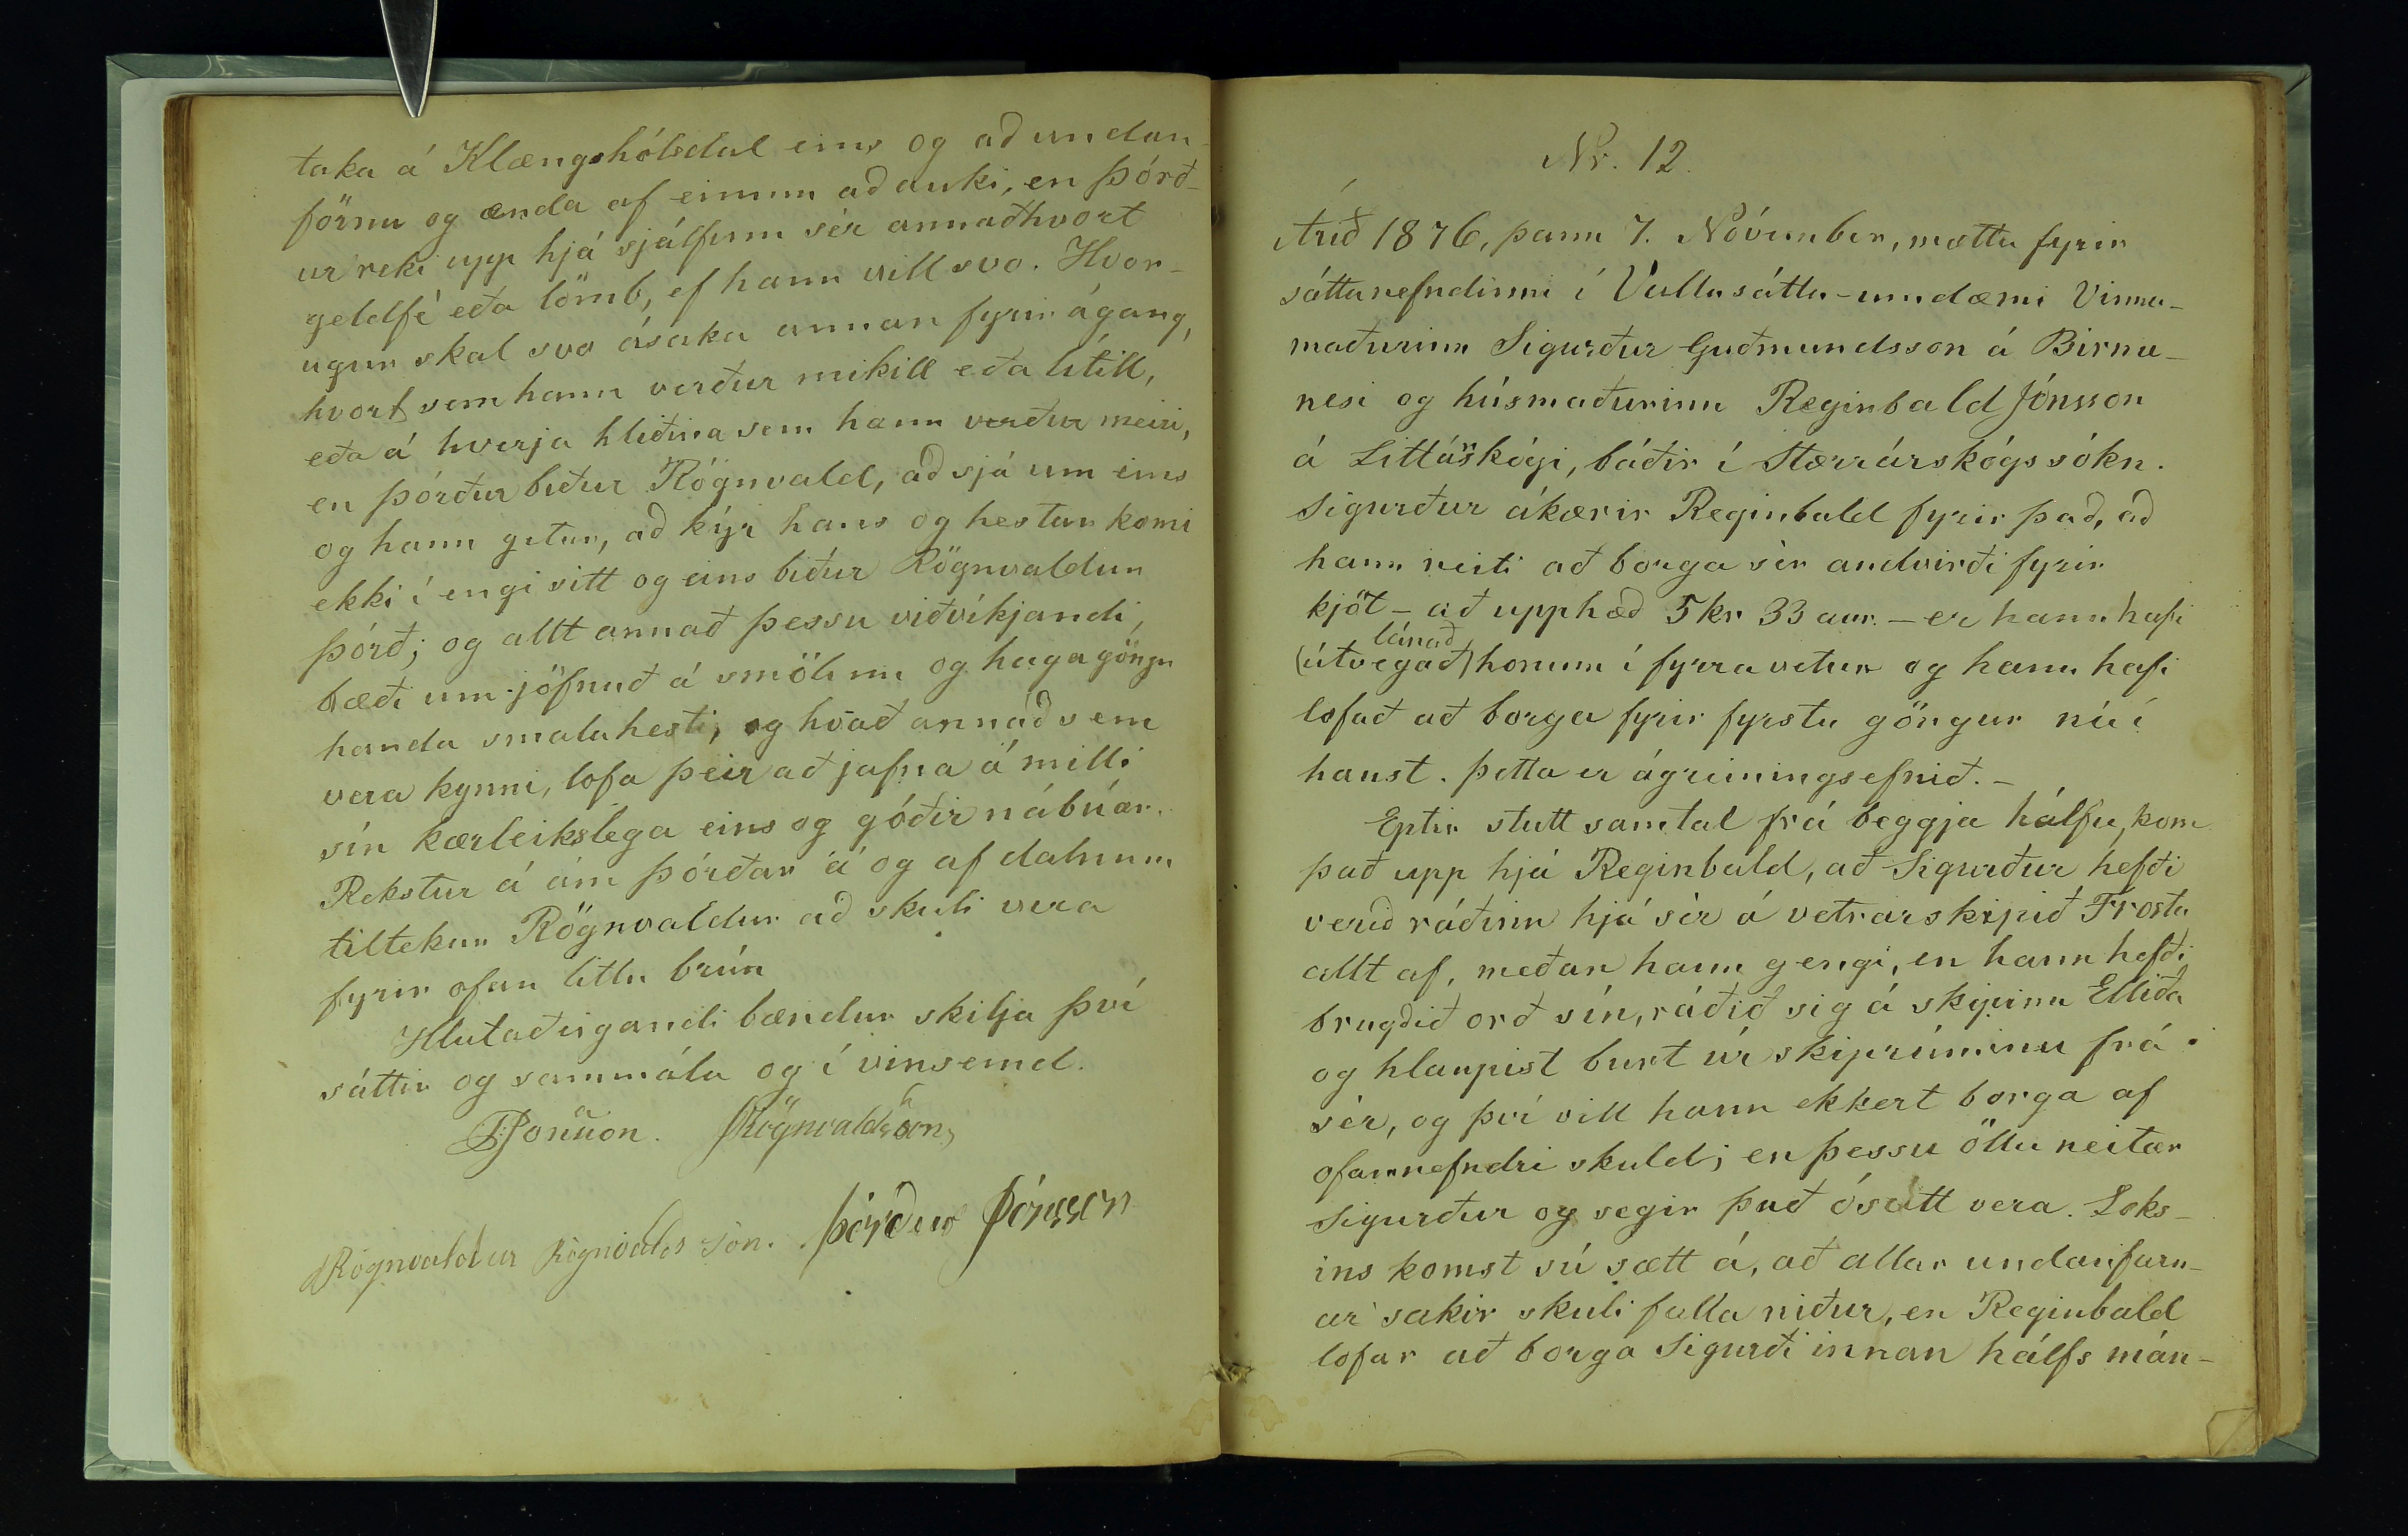 taka á Klængshólsdal eins og að undan-
förnu og ænda af einum að auki, en Þórð-
ur reki upp hjá sjálfum sér annaðhvort
geldfé eða lömb, ef hann vill svo. Hvor-
ugur skal svo ásaka annan fyrir ágang,
hvort sem hann verður mikill eða lítill,
eða á hverja hliðina sem hann verður meiri,
en Þórður biður Rögnvald, að sjá um eins
og hann getur, að kýr hans og hestur komi
ekki í engi sitt og eins biður Rögnvaldur
Þórð; og allt annað þessu viðvíkjandi,
bæði um jöfnuð á smölum og hagagöngu
handa smalahesti, og hvað annað sem
vera kynni, lofa þeir að jafna á milli
sín kærleikslega eins og góðir nábúar.
Rekstur á ám Þórðar á og af dalnum
tiltekur Rögnvaldur að skuli vera
fyrir ofan litlu brún
Hlutaðeigandi bændur skilja því
sáttir og sammála og í vinsemd.
Jónsson. Rögnvaldsson
Rögnvaldur Rögnvalds son. Þórður Jónsson
Nr. 12.
Árið 1876, þann 7. Nóvember, mættu fyrir
sáttanefndinni í Vallusáttu-umdæmi Vinnu-
maðurinn Sigurður Guðmundsson á Birnu-
nesi og húsmaðurinn Reginbald Jónsson
á Litláskógi, báðir í Stærrárskógssókn.
Sigurður ákærir Reginbald fyrir það, að
hann neiti að borga sér andvirði fyrir
kjöt - að upphæð 5 kr 33 aur. - er hann hafi
lánað
(útvegað) honum í fyrra vetur og hann hafi
lofað að borga fyrir fyrstu göngur nú í
haust. Þetta er ágreiningsefnið. -
Eptir stutt samtal frá beggja hálfu, kom
það upp hjá Reginbald, að Sigurður hefði
verið ráðinn hjá sér á vetrarskipið Frosta
allt af, meðan hann gengi, en hann hefði
brugðið orð sín, ráðið sig á skipinu Elliða
og hlaupist burt úr skiprúminu frá
sér, og því vill hann ekkert borga af
ofannefndri skuld; en þessu öllu neitar
Sigurður og segir það ósatt vera. Loks-
ins komst sú sætt á, að allar undanfarn-
ar sakir skuli falla niður, en Reginbald
lofar að borga Sigurði innan hálfs mán-